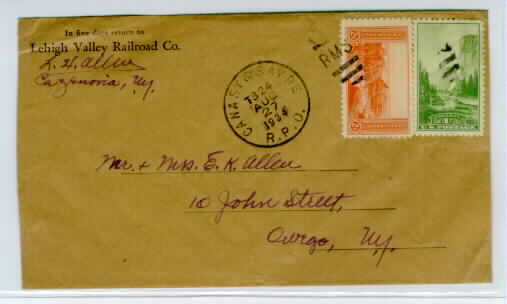 In five days return to
Lehigh Valley Railroad Co.
L. H. Allen
Cazenovia, N.Y.
CANAST & SAYRE
TR 24
AUG
27
1934
R.P.O.
RMS
U.S. POSTAGE
Mr. & Mrs. E. K. Allen
10 John Street,
Owego, N.Y.